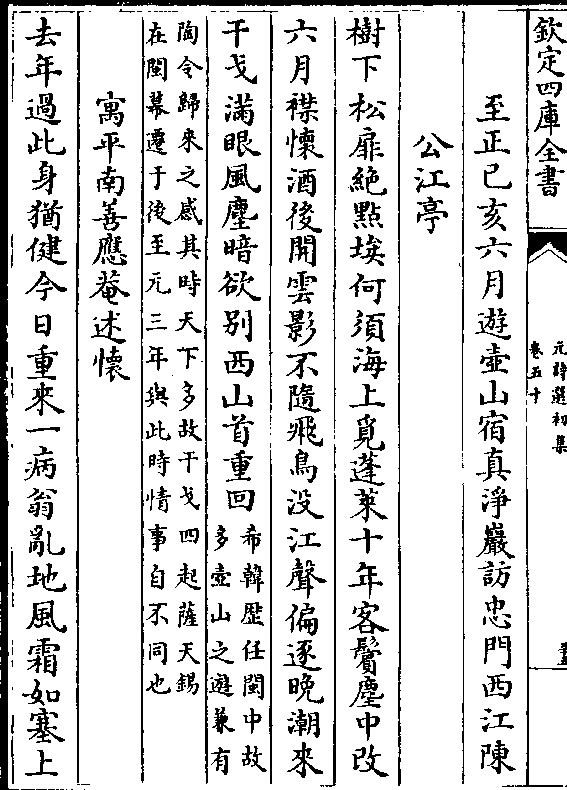 欽定四庫全書
元詩選初集
卷五十
至正己亥六月遊壺山宿真淨巖訪忠門西江陳
公江亭
樹下松扉絶點埃何須海上覓蓬萊十年客鬢塵中改
六月襟懷酒後開雲影不隨飛鳥没江聲偏逐晚潮來
干戈滿眼風塵暗欲别西山首重回
希韓歷任閩中故
多壺山之遊兼有
陶令歸來之感其時天下多故干戈四起薩天錫
在閩幕遷于後至元三年與此時情事自不同也
寓平南善應菴述懷
去年過此身猶健今日重來一病翁亂地風霜如塞上